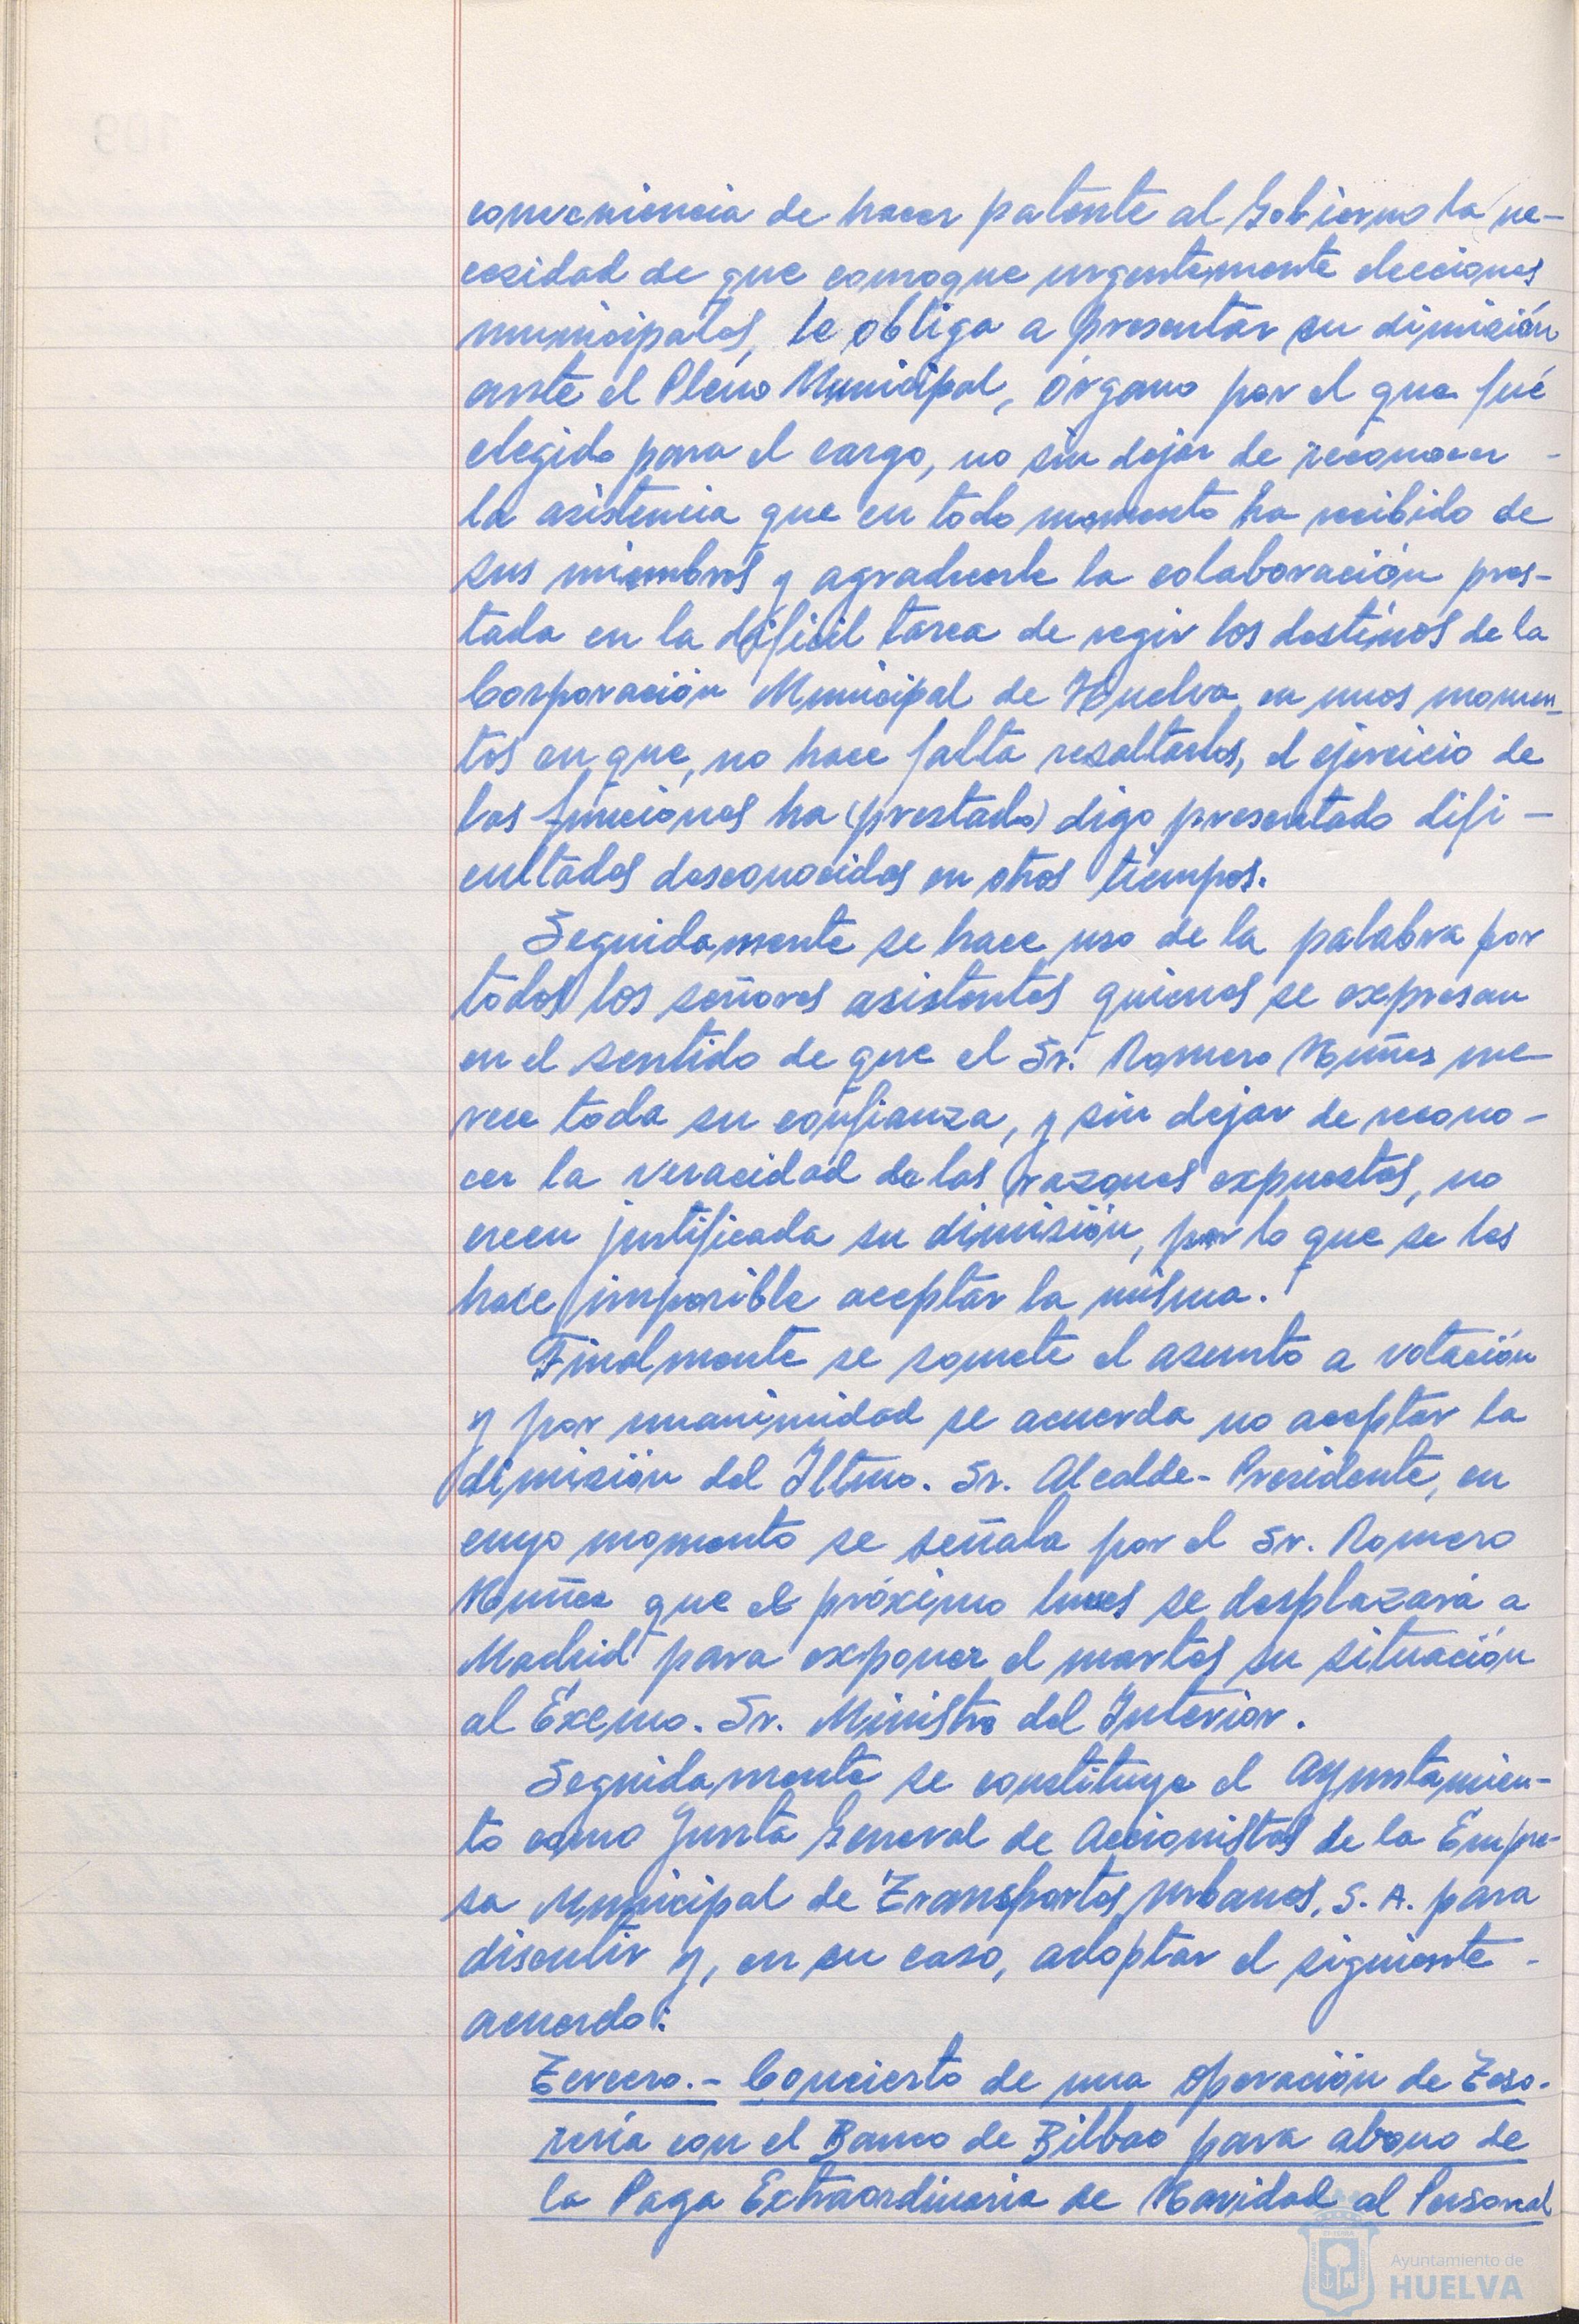 conveniencia de hacer patente al Gobierno la ne-
cesidad de que convoque urgentemente elecciones
municipales, le obliga a presentar su dimisión
ante el Pleno Municipal, órgano por el que fué
elegido para el cargo, no sin dejar de reconocer -
la asistencia que en todo momento ha recibido de
sus miembros y agradecerle la colaboración pres-
tada en la difícil tarea de regir los destinos de la
Corporación Municipal de Huelva en unos momen-
tos en que, no hace falta resaltarlos, el ejercicio de
las funciones ha (prestado) digo presentado difi-
cultades desconocidas en otros tiempos.
Seguidamente se hace uso de la palabra por
todos los señores asistentes quienes se expresan
en el sentido de que el Sr. Romero Núñez me-
rece toda su confianza, y sin dejar de recono-
cer la veracidad de las razones expuestas, no
creen justificada su dimisión, por lo que se les
hace imposible aceptar la misma.
Finalmente se somete el asunto a votación
y por unanimidad se acuerda no aceptar la
dimisión del Iltmo. Sr. Alcalde-Presidente, en
cuyo momento se señala por el Sr. Romero
Núñez que el próximo lunes se desplazará a
Madrid para exponer el martes su situación
al Excmo. Sr. Ministro del Interior.
Seguidamente se constituye el Ayuntamien-
to como Junta General de Accionistas de la Empre-
sa Municipal de Transportes Urbanos, S. A. para
discutir y, en su caso, adoptar el siguiente -
acuerdo:
Tercero.- Concierto de una operación de Teso-
rería con el Banco de Bilbao para abono de
la Paga Extraordinaria de Navidad al Personal
Ayuntamiento de
HUELVA